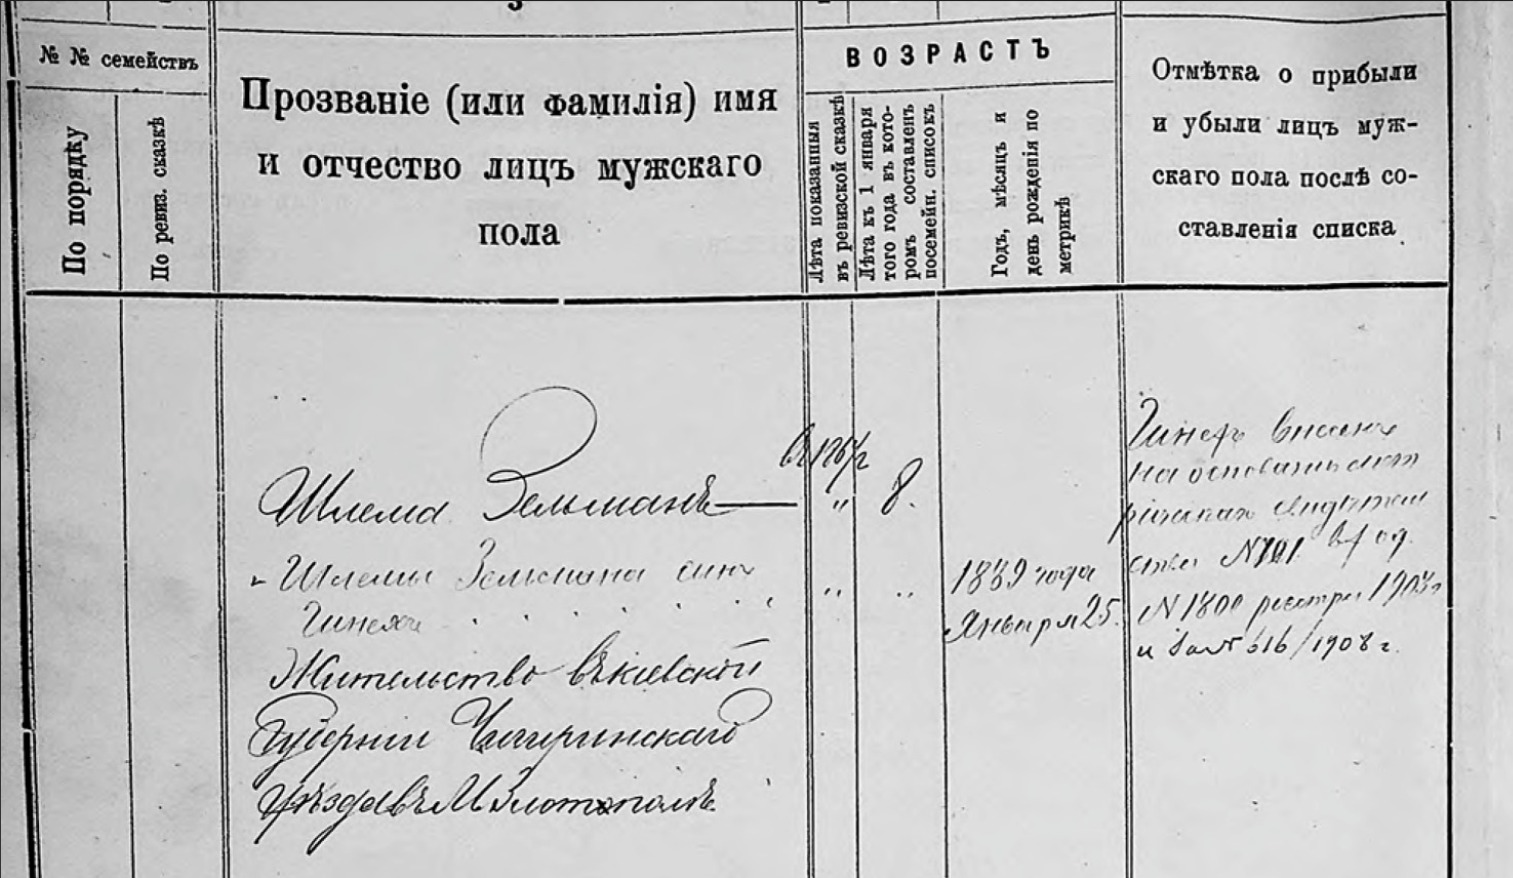 3
№ № семействъ
По порядку
По ревиз. сказкѣ
Прозваніе (или фамилія) имя
и отчество лицъ мужскаго
пола
ВОЗРАСТЪ
Лѣта показанныя
въ ревизской сказкѣ
Лѣта къ 1 января
того года въ кото-
ромъ составленъ
посемейн. списокъ
Годъ, мѣсяцъ и
день рожденія по
метрикѣ
Отмѣтка о прибыли
и убыли лицъ муж-
скаго пола послѣ со-
ставленія списка
Шлема Зельманъ — " 8.
Шлемы Зельмана сынъ
Жительство въ Кіевской
Губерніи Чигиринскаго
уѣзда въ М Златополѣ
1889 года
Января 25.
вписанъ
на основаніи мет
рическаго свидѣтель
ства №
№ 1800 реестра 1903 г
и за № 616/1908 г.